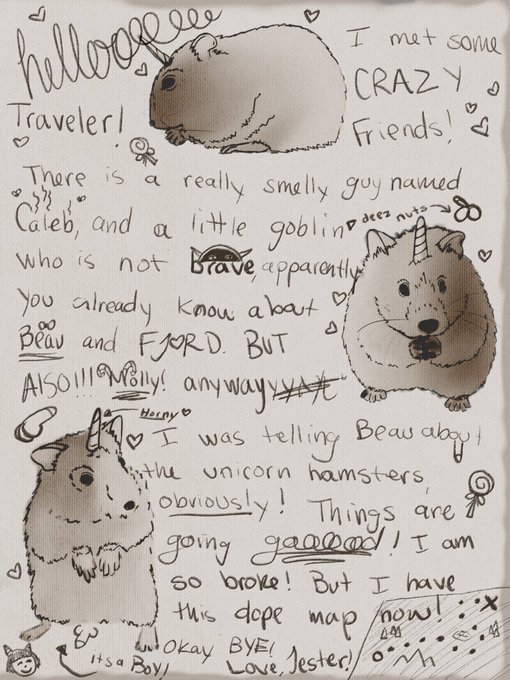 hellooooeeee
I met some
CRAZY
Traveler!
Friends!
There is a really smelly guy named
Caleb, and a little goblin
deez nuts
who is not brave, apparently
You already know about
Beau and FJORD. BUT
ALSO!!! Molly! anyway
Horny
I was telling Beau about
the unicorn hamsters,
obviously! Things are
going gaooood! I am
so broke! But I have
this dope map now!
Okay BYE!
its a BOY!
Love, Jester!